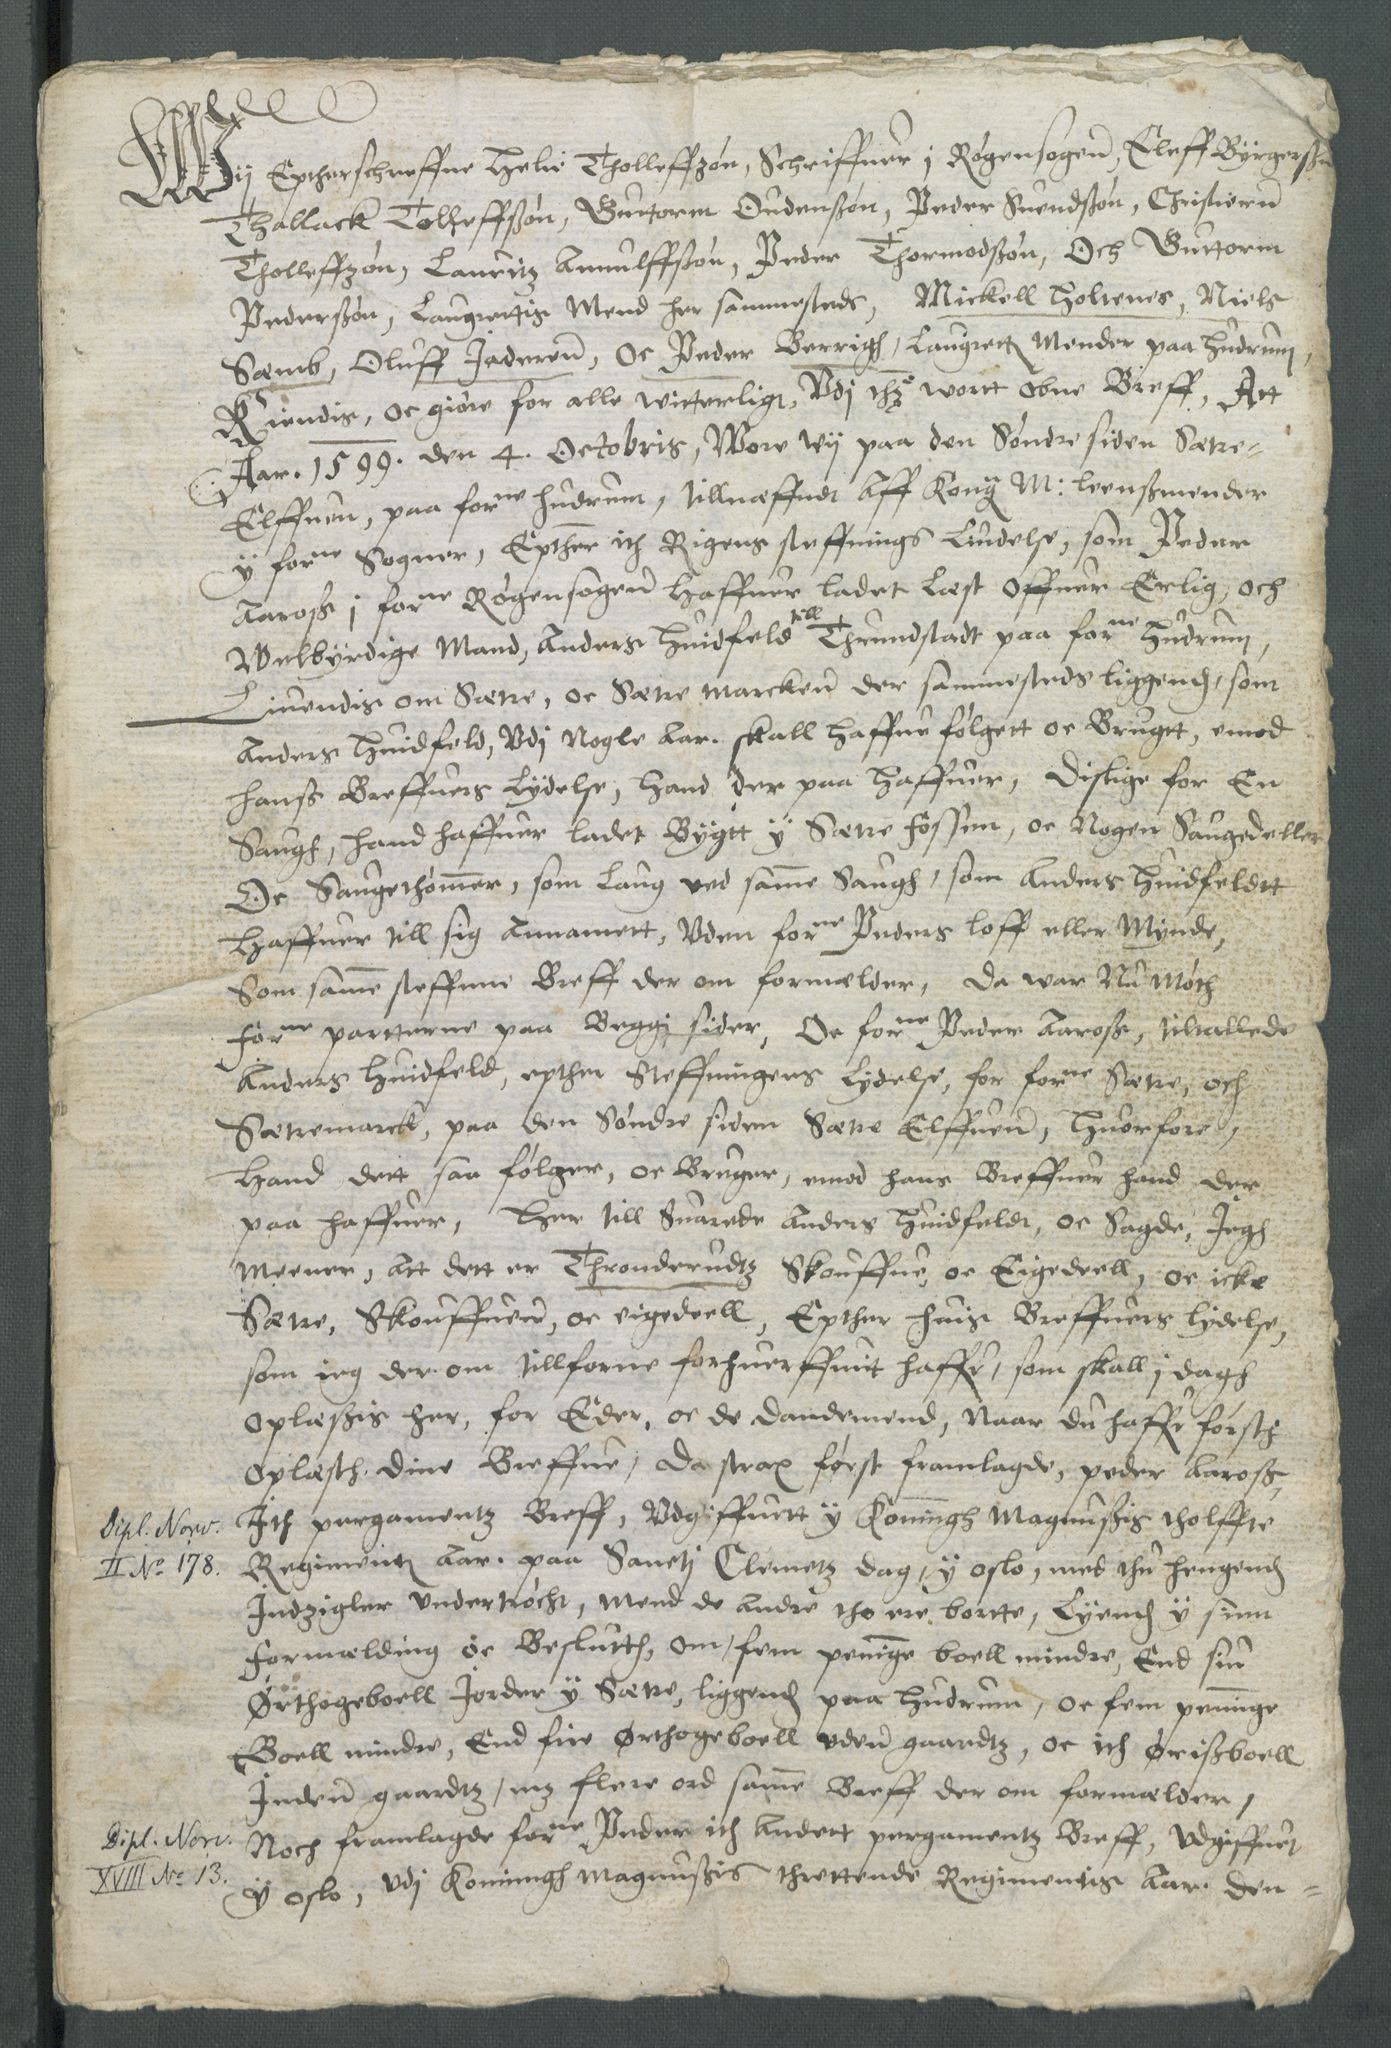 Wij Epterschreffne Helie Tholleffzón, Schriffuer j Røgensogenn, Eleff Byrgerßøn
Thallack Tolheffßón, Guttorm Oudenßón, Peder Suendßón, Christiernn
Tholleffzón, Lauritz Arnulffßón, Peder Thormodßón, Och Guttorm
Pederßón, Laugrettis Mend her sammesteds, Mickell Holtenes, Niels
Sæmb, Oluff Jaderenn, Oc Peder Berrigh, Laugrett Mender paa Hudrum,
Kiendis, oc giøre for alle witterligt, Vdj thz wortt obne Breff, Att
Aar. 1599. den 4. Octobris, Wore wij paa den Søndre siden Sætre-
Elffuen, paa forne Hudrum, tillneffndt aff Kong M: leenßmender
y forne Sogner, Epther ith Rigens steffnings Liudelse, som Peder
Aaroß j forne Røgensogenn Haffuer ladet Læst offuer Erlig, och
Welbyrdige Mand, Anders Huidfeld till Thrundstadt paa forne Hudrum,
Liuendis om Sætre, oc Sætre marckenn der sammesteds liggend, som
Anders Huidfeld, Vdj Nogle Aar. skall haffue følgett oc Brugtt, emod
hanß Breffuers Lydelse, hand der paa haffuer, Dislige for En
Saugh, hand haffuer ladet Bygtt y Sætre Fossen, oc Nogen Saugedeller
Oc Saugethømer, som Laug ved same Saugh, som Anders Huidfeldtt
Haffuer till sig Annamett, Vden forne Peders loff eller Mynde,
Som same steffnne Breff der om formelder, Da war Nu Møth
forne partterne paa Beggj sider, Oc forne Peder Aaroß, tiltallede
Anders Huidfeld, epther Steffningens Lydelse, for forne Sætre, och
Sætremarck, paa den Søndre siden Sætre Elffuenn, Huorfore,
Hand dett saa følger, oc Bruger, emod hans Breffuer hand der
paa haffuer, Her till Suarede Anders Huidfeldt, oc Sagde, Jegh
Meener, Att dett er Thronderudtz Skouffue oc Eigedeell, oc icke
Sætre, Skouffuenn, oc eigedeell, Epther huis Breffuers lydelse,
som ieg der om tillforne forhuerffuit haffr, som skall j dagh
Oplæßis her, for Eder, oc de dandemend, Naar du haffrførsth
Oplæsth dine Breffue, Da strax først framlagde, peder Aaroß,
Jth pergamentz Breff, Vdgiffuett y Koningh Magnußis tholffte
Regimentt Aar. paa Sanctj Clemetz dag, y Oslo, med thu hengend
Jndzigler vndertrócht, mend de Andre tho ere bortte, Lyend y sinn
Formelding oc Beslutth, om, fem peninge boell mindre, End siu
Ørthogeboell Jorder y Sætre, liggend paa Hudrum, oc fem peninge
Boell mindre, End fire Ørthogeboell vdenn gaardtz, oc ith Ørißboell
Jndenn gaardtz, mz flere ord same Breff der om formelder,
Noch framlagde forne Peder ith Andett pergamentz Breff, Vdgiffuet
y Oslo, vdj Koningh Magnußis threttende Regimentis Aar. den-
Dipl. Norv.
II No 178.
Dipl. Norv.
XVIII No 13.